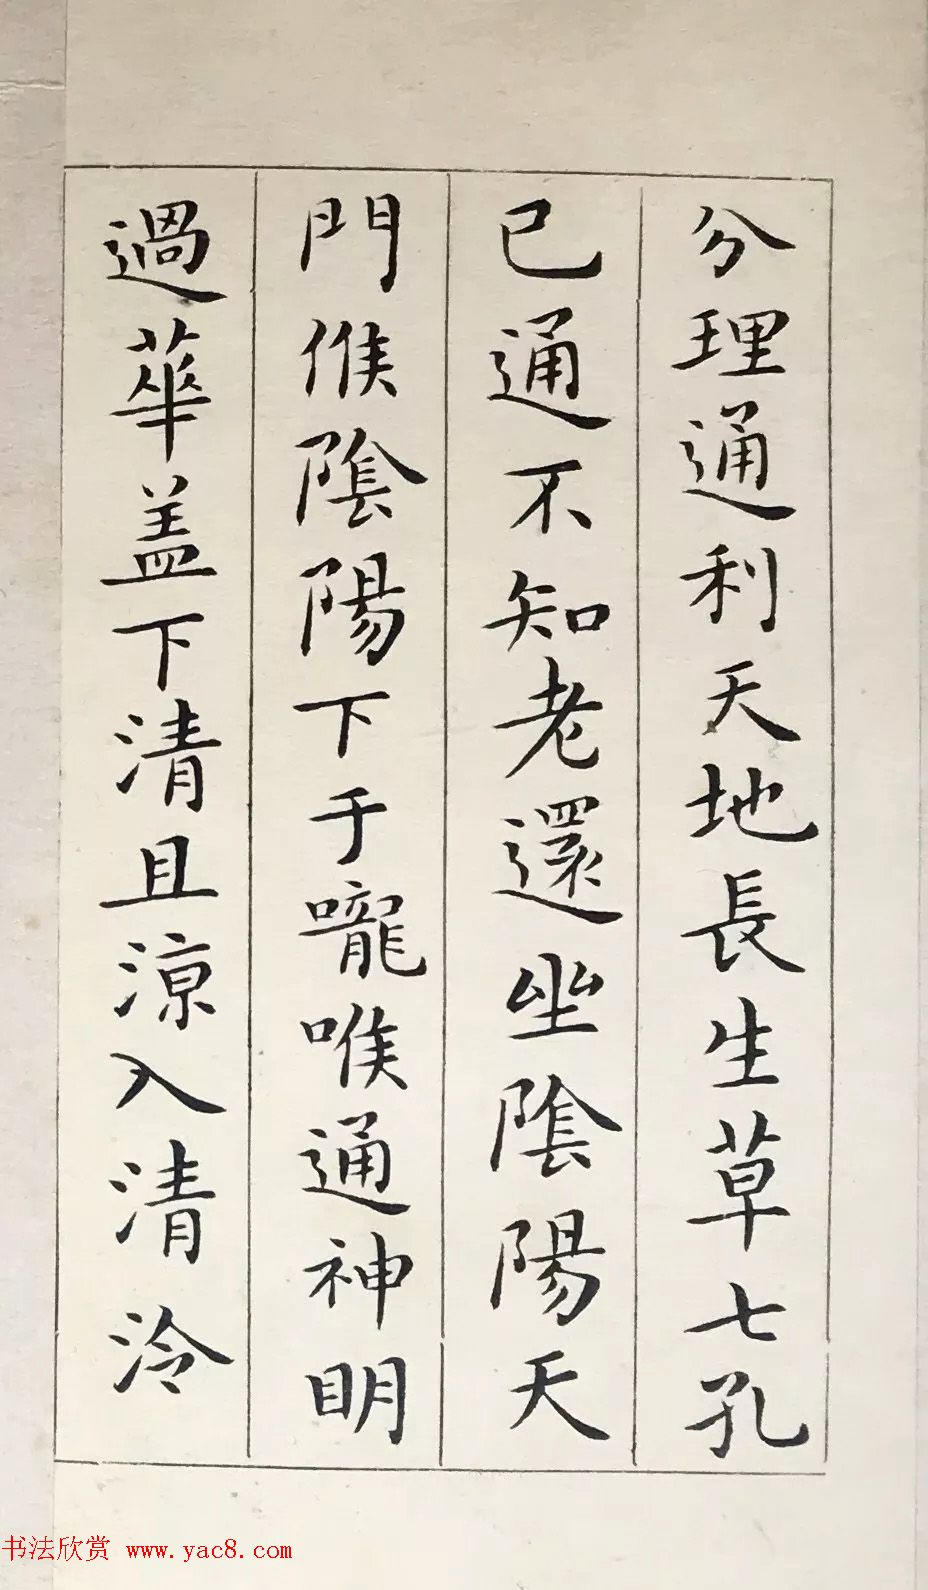 分理通利天地長生草七孔
已通不知老還坐陰陽天
門候陰陽下于嚨喉通神明
過華盖下清且涼入清泠
书法欣赏 www.yac8.com